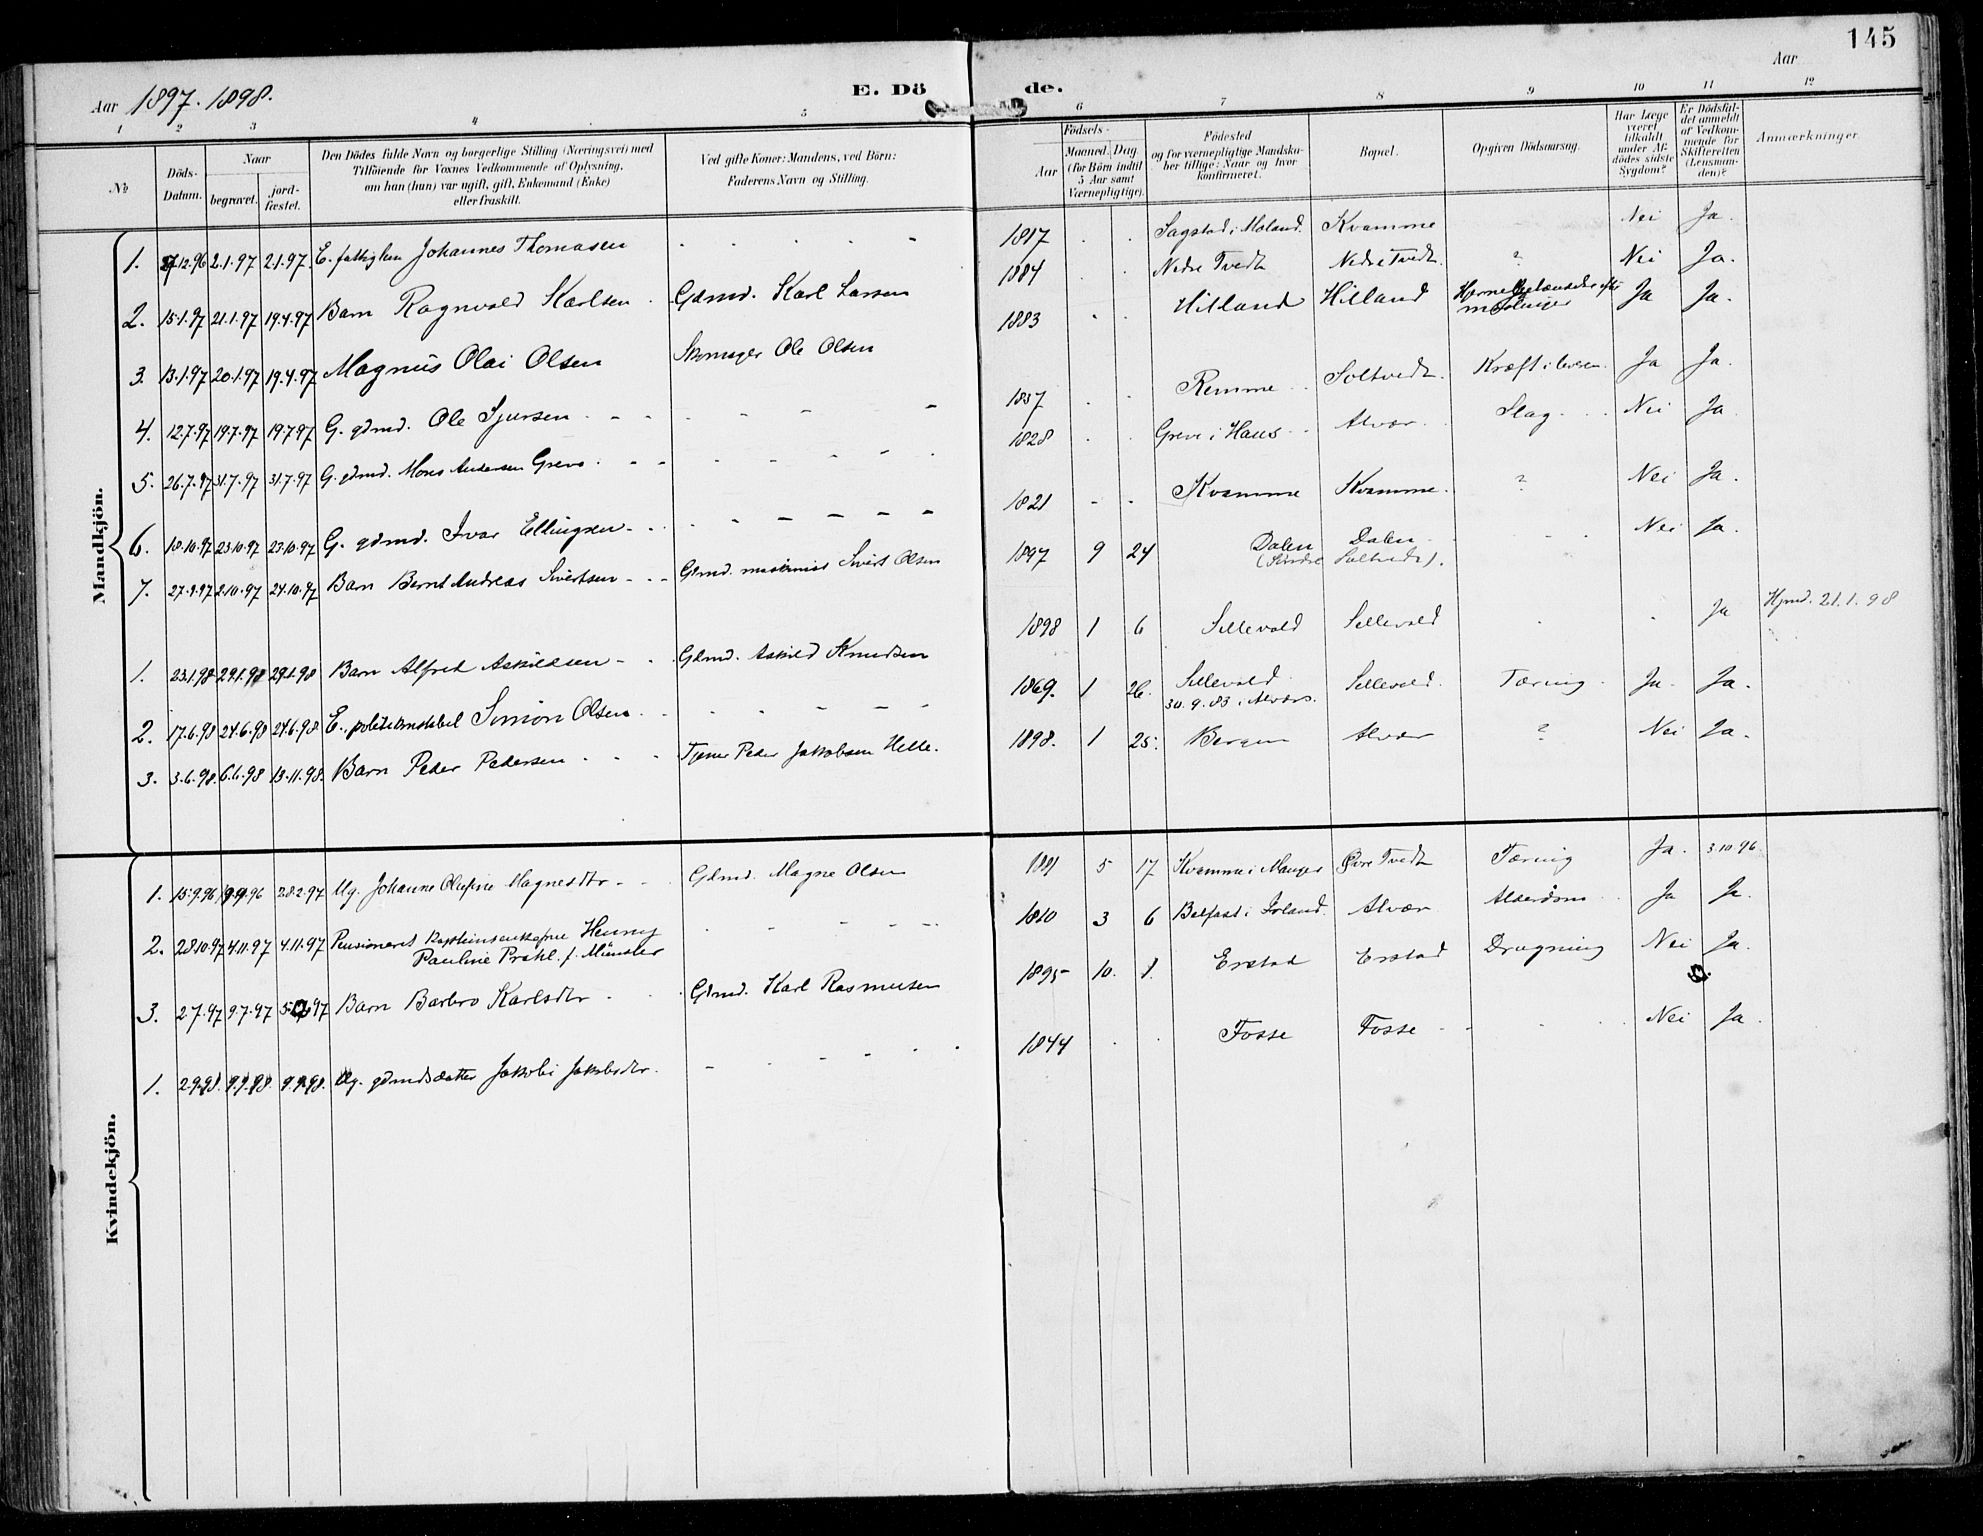 145
Aar 1897. 1898.
E. Dö de.
Aar
1 2 3 4 5 6 7 8 9 10 11 12
No
Döds-Datum.
Naar
begravet.
jord-fæstet.
Den Dödes fulde Navn og borgerlige Stilling (Næringsvei) med
Tilföiende for Voxnes Vedkommende af Oplysning,
om han (hun) var ugift, gift, Enkemand (Enke)
eller fraskilt.
Ved gifte Koner: Mandens, ved Börn:
Faderens Navn og Stilling.
Födsels-
Aar
Maaned. Dag
(for Börn indtil
5 Aar samt
Værnepligtige).
Födested
og for værnepligtige Mandska-
ber tillige: Naar og hvor
konfirmeret.
Bopæl.
Opgiven Dödsaarsag.
Har Læge
været
tilkaldt
under Af-
dödes sidste
Sygdom?
Er Dödsfal-
det anmeldt
af Vedkom-
mende for
Skifteretten
(Lensman-
den)?
Anmærkninger.
Mandkjön.
1. 27.12.96 2.1.97 2.1.97. E. fattiglem Johannes Thomasen 1817 Sagstad i Moland. Kvamme Nei Ja.
2. 15.1.97 21.1.97 19.4.97 Barn Ragnvald Karlsen Gdmd. Karl Larsen 1884 Nedre Tvedt Nedre Tvedt. ? Nei Ja.
3. 13.1.97 20.1.97 19.4.97 Magnus Olai Olsen Skomager Ole Olsen 1883 Hilland Hilland efter mæslinger Ja Ja.
4. 12.7.97 19.7.97 19.7.97 G. gdmd. Ole Sjursen 1837 Remme Soltvedt. Kræft i leveren Ja Ja.
5. 26.7.97 31.7.97 31.7.97 G. gdmd. Mons Andersen Greve 1828 Greve i Haus Alvær Slag Nei Ja
6. 18.10.97 23.10.97 23.10.97 G. gdmd. Ivar Ellingsen 1821 Kvamme Kvamme. ? Nei Ja.
7. 27.9.97 2.10.97 24.10.97 Barn Bernt Andreas Sivertsen Gdmd. Sivert Olsen 1897 9 24 Dalen Dalen Nei Ja.
(Söndre Soltvedt).
1. 23.1.98 29.1.98 29.1.98 Barn Alfred Askildsen Gdmd. Askild Knudsen 1898 1 6 Sellevold Sellevold Ja Hjmd. 21.1.98
2. 17.6.98 24.6.98 24.6.98 E. politikonstabel Simon Olsen 1869. 1 26. Sellevold Sellevold. Tæring Ja. Ja.
30.9.83 i Alvær.
3. 3.6.98. 6.6.98 13.11.98. Barn Peder Pedersen Tjener Peder Jakobsen Helle. 1898. 1 25. Bergen Alvær ? Nei Ja.
Kvindekjön.
1. 15.9.96 19.9.96 28.2.97 Ug. Johanne Olufine Magnesdtr Gdmd. Magne Olsen 1891 5 17 Kvamme i Manger Øvre Tvedt Tæring Ja. 3.10.96.
2. 28.10.97 4.11.97 4.11.97 Pensioneret Kapteinsenkefrue Henny 1810 3 6 Belfast i Irland. Alvær Alderdom Ja Ja.
Pauline Prahl. f. Münster
3. 2.7.97 9.7.97 Barn Barbro Karlsdtr Gdmd. Karl Rasmusen 1895 10. 1. Erstad Erstad Drugning Nei Ja.
1. 2.9.98. 9.9.98. 9.9.98. Ug. gdmdsdatter Jakobi Jakobsdtr. 1844 Fosse Fosse Nei Ja.